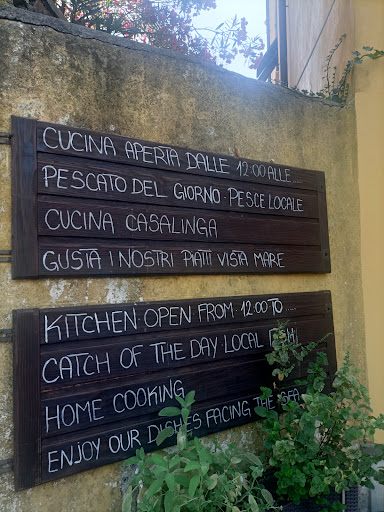 CUCINA APERTA DALLE 12:00 ALLE ...
PESCATO DEL GIORNO. PESCE LOCALE
CUCINA CASALINGA
GUSTA I NOSTRI PIATTI VISTA MARE
KITCHEN OPEN FROM 12:00 TO .....
CATCH OF THE DAY. LOCAL FISH
HOME COOKING
ENJOY OUR DISHES FACING THE SEA